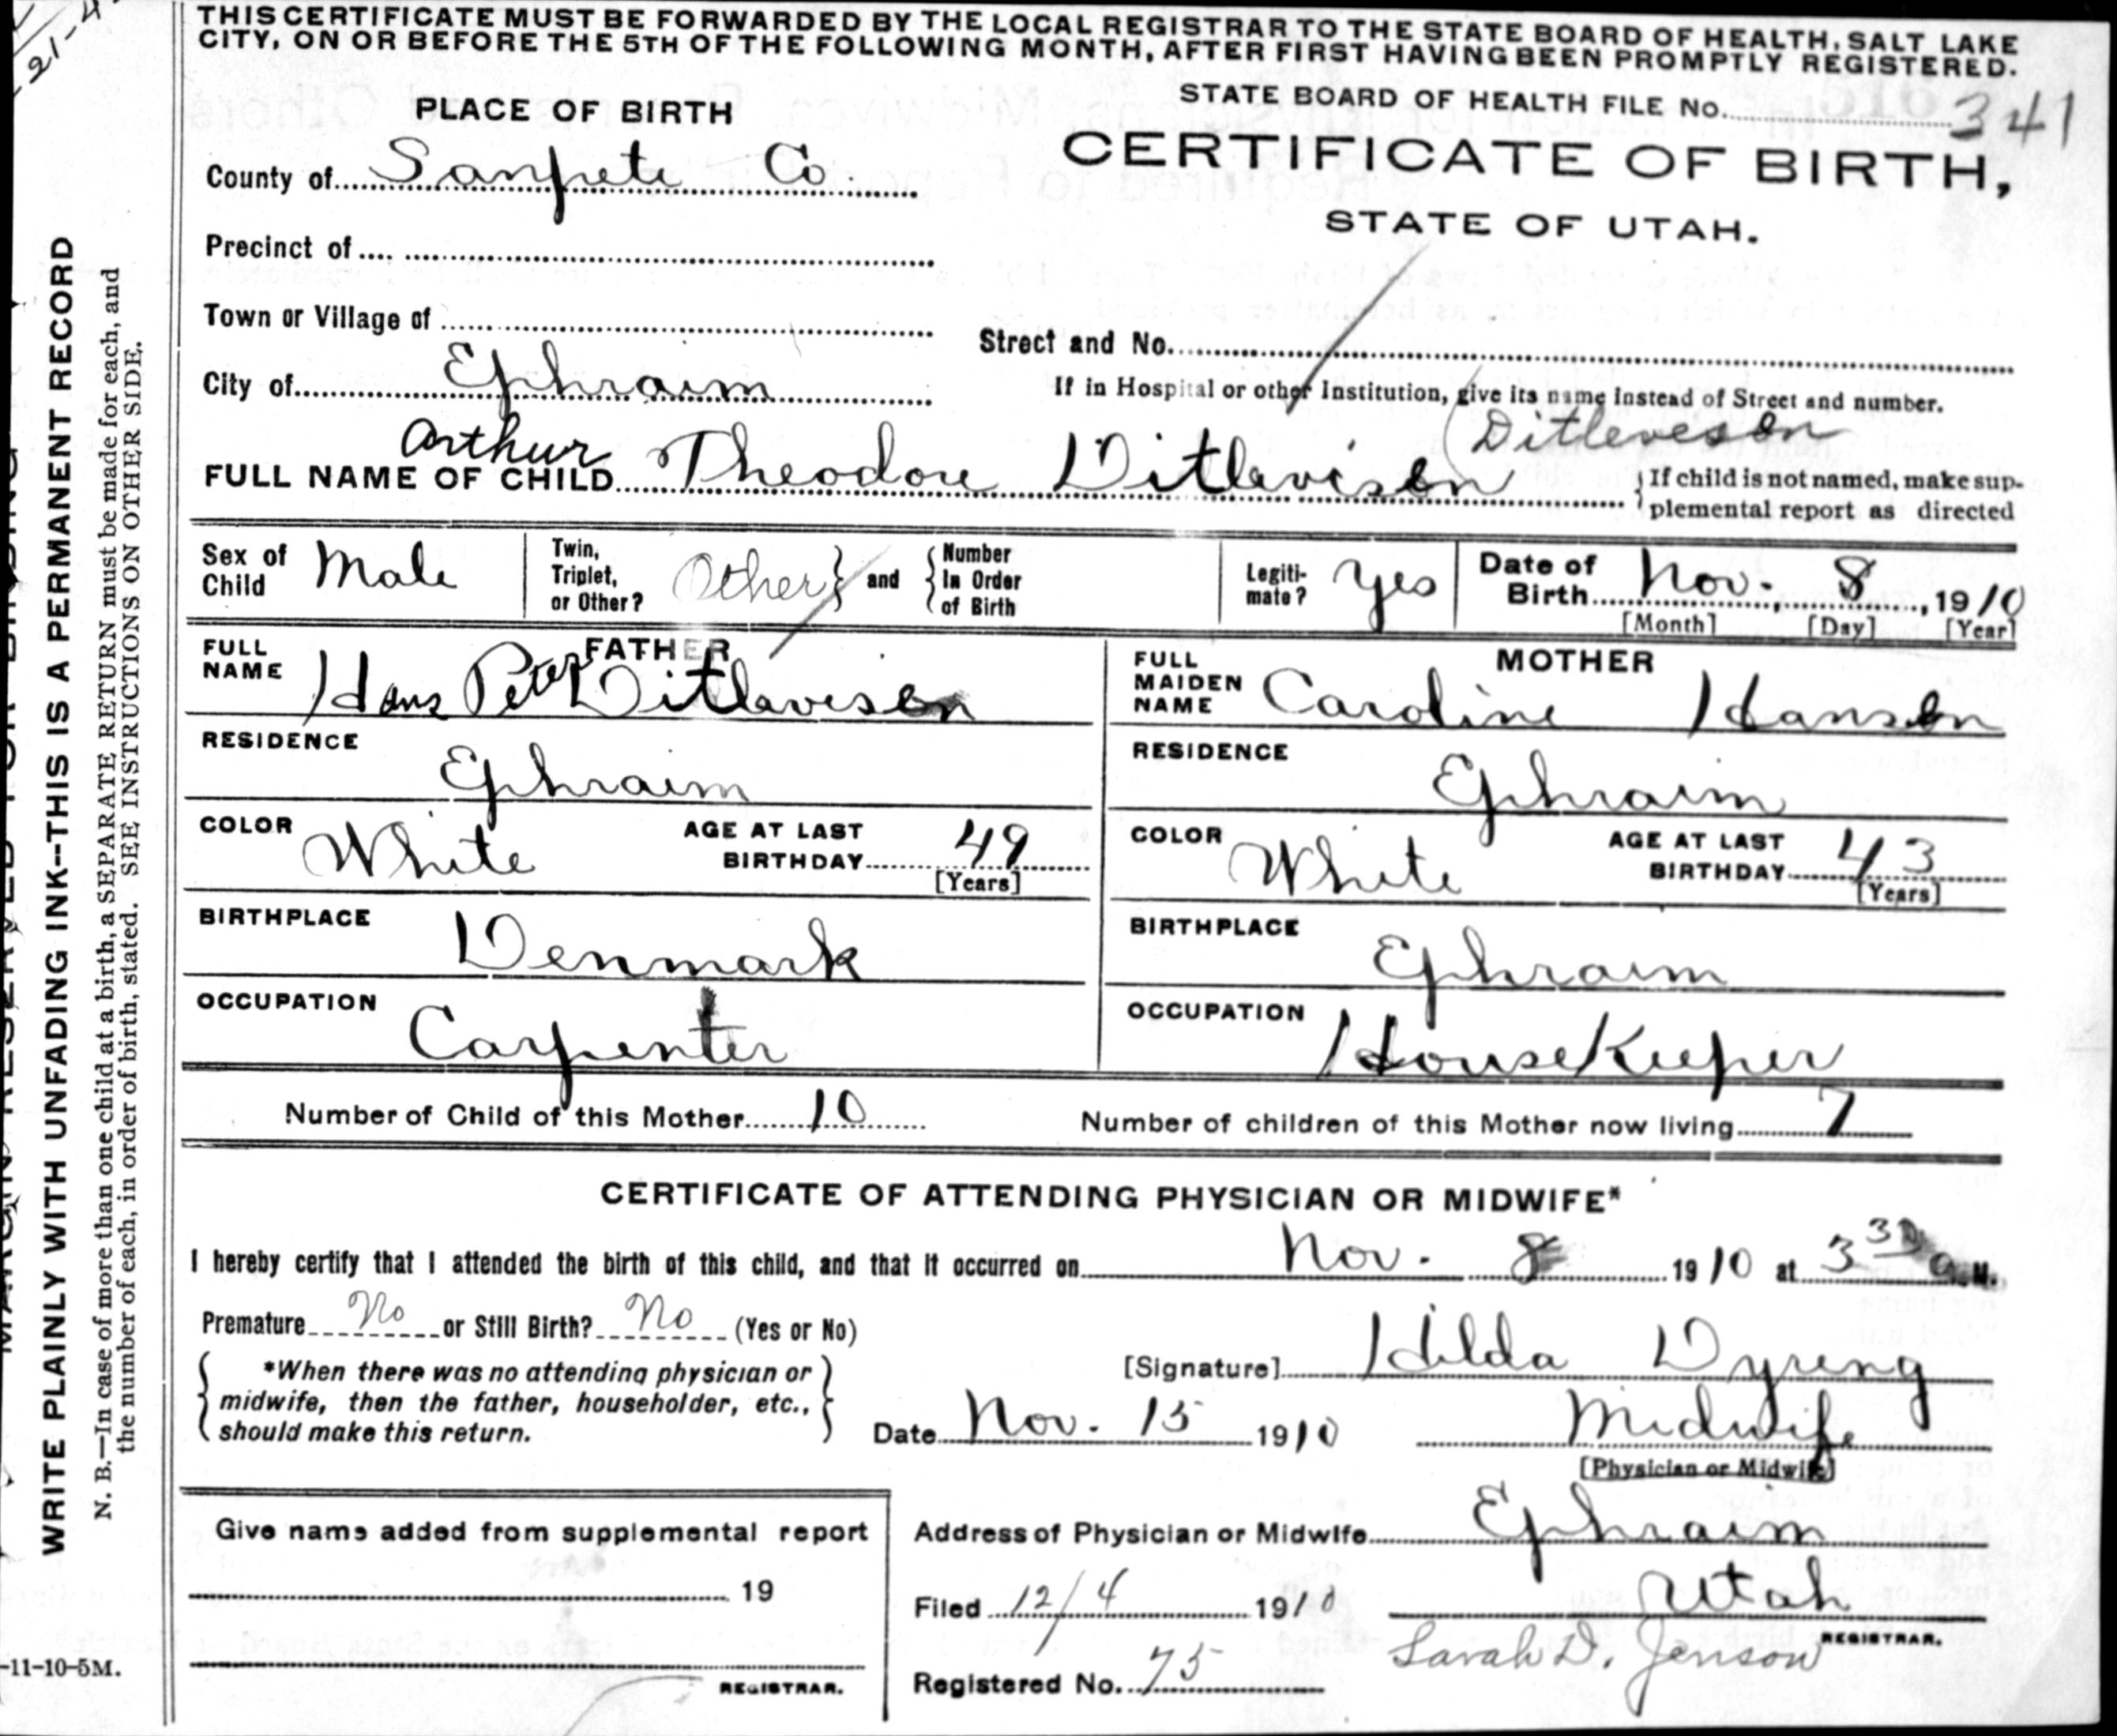 THIS CERTIFICATE MUST BE FORWARDED BY THE LOCAL REGISTRAR TO THE STATE BOARD OF HEALTH, SALT LAKE
CITY, ON OR BEFORE THE 5TH OF THE FOLLOWING MONTH, AFTER FIRST HAVING BEEN PROMPTLY REGISTERED.
STATE BOARD OF HEALTH FILE No. 341
PLACE OF BIRTH
CERTIFICATE OF BIRTH,
STATE OF UTAH.
County of Sanpete Co.
Precinct of
Town or Village of
Street and No.
City of Ephraim
If in Hospital or other Institution, give its name instead of Street and number.
(Ditleveson
FULL NAME OF CHILD Arthur Theodore Ditlevison
If child is not named, make sup-
plemental report as directed
Sex of Child Male
Twin, Triplet, or Other? Other and Number In Order of Birth
Legiti-mate? Yes
Date of Birth Nov. 8, 1910
[Month] [Day] [Year]
FATHER
FULL NAME Hans Peter Ditlaveson
RESIDENCE
Ephraim
COLOR White AGE AT LAST BIRTHDAY 49
[Years]
BIRTHPLACE Denmark
OCCUPATION Carpenter
MOTHER
FULL MAIDEN NAME Caroline Hanson
RESIDENCE
Ephraim
COLOR White AGE AT LAST BIRTHDAY 43
[Years]
BIRTHPLACE Ephraim
OCCUPATION HouseKeeper
Number of Child of this Mother 10 Number of children of this Mother now living 7
CERTIFICATE OF ATTENDING PHYSICIAN OR MIDWIFE*
I hereby certify that I attended the birth of this child, and that it occurred on Nov. 8 1910 at 3 30 a.M.
Premature No or Still Birth? No (Yes or No)
*When there was no attending physician or
midwife, then the father, householder, etc.,
should make this return.
[Signature] Hilda Dyreng
Date Nov. 15 1910 Midwife
[Physician or Midwife]
Give name added from supplemental report
19
REGISTRAR.
Address of Physician or Midwife Ephraim
Utah
Filed 12/4 1910
REGISTRAR.
Sarah D. Jenson
Registered No. 75
-11-10-5M.
WRITE PLAINLY WITH UNFADING INK--THIS IS A PERMANENT RECORD
N. B.—In case of more than one child at a birth, a SEPARATE RETURN must be made for each, and
the number of each, in order of birth, stated. SEE INSTRUCTIONS ON OTHER SIDE.